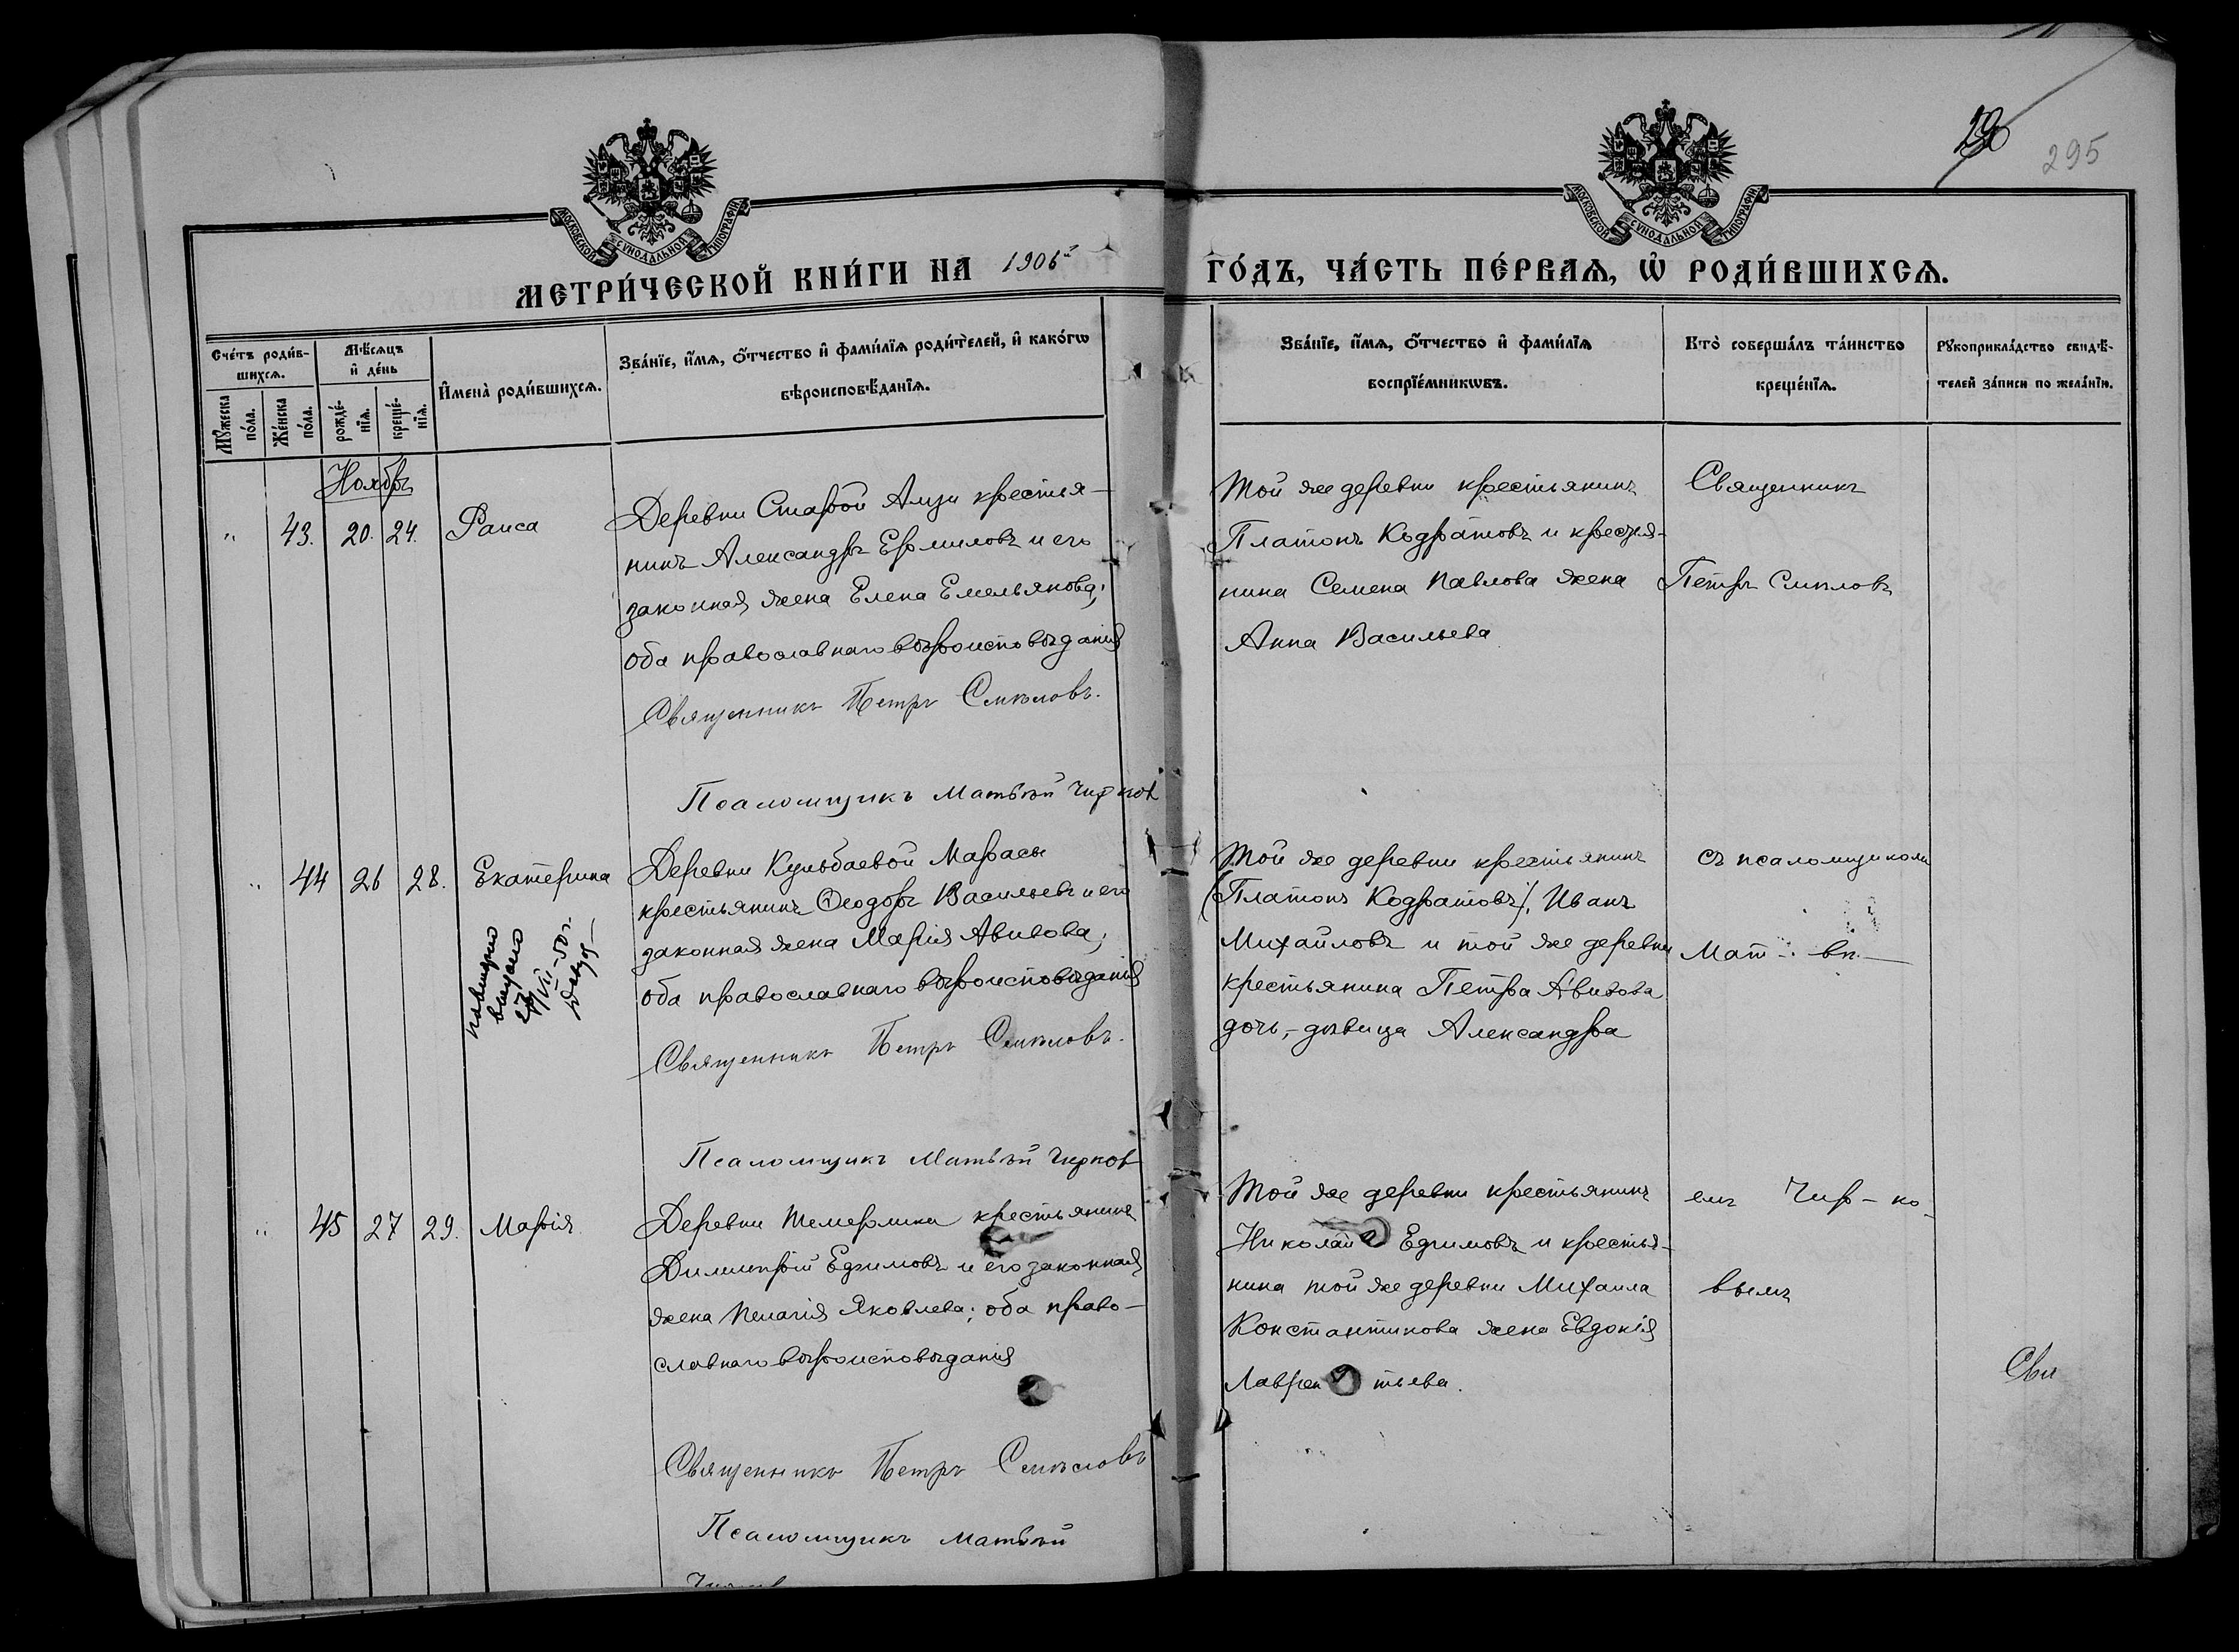 190
295
МОСКОВСКОЙ СѴНОДАЛЬНОЙ ТИПОГРАФІИ
МОСКОВСКОЙ СѴНОДАЛЬНОЙ ТИПОГРАФІИ
МЕТРИ́ЧЕСКОЙ КНИ́ГИ НА 1906й
ГО́ДЪ, ЧА́СТЬ ПЕ́РВАѦ, Ѡ҆ РОДИ́ВШИХСѦ.
Сче́тъ роди́в-
шихсѧ.
Мꙋ́жеска по́ла.
Же́нска по́ла.
Мѣ́сѧцъ и҆ де́нь
рожде́-нїѧ.
креще́-нїѧ.
И҆мена̀ роди́вшихсѧ.
Зва́нїе, и҆́мѧ, ѻ҆́тчество и҆ фами́лїѧ роди́телей, и҆ како́гѡ
вѣроисповѣ́данїѧ.
Зва́нїе, и҆́мѧ, ѻ҆́тчество и҆ фами́лїѧ
воспрїе́мникѡвъ.
Кто̀ соверша́лъ та́инство
креще́нїѧ.
Рꙋкоприкла́дство свидѣ́-
телей за́писи по жела́нїю.
Ноябрь
" 43. 20. 24. Раиса
Деревни Старой Амзи крестья-
нинъ Александръ Ермиловъ и его
законная жена Елена Емельянова;
оба православнаго вѣроисповѣданія
Священникъ Петръ Смѣловъ.
Псаломщикъ Матвѣй Чирков
Той же деревни крестьянинъ
Платонъ Кодратовъ и крестья-
нина Семена Павлова жена
Анна Васильева
Священникъ
Петръ Смѣловъ
" 44 26 28. Екатерина
повторно
выдано
27/VII-50 г.
Деревни Кульбаевой Марасы
крестьянинъ Ѳеодоръ Васильевъ и его
законная жена Марія Авивова;
оба православнаго вѣроисповѣданія
Священникъ Петръ Смѣловъ.
Псаломщикъ Матвѣй Чирков
Той же деревни крестьянинъ
(Платонъ Кодратовъ), Иванъ
Михайловъ и той же деревни
крестьянина Петра Авивова
дочь, - дѣвица Александра
съ псаломщикомъ
Мат - вѣ -
" 45 27 29. Марія
Деревни Темерлика крестьянинъ
Димитрій Ефимовъ и его законная
жена Пелагія Яковлева; оба право-
славнаго вѣроисповѣданія
Священникъ Петръ Смѣловъ
Псаломщикъ Матвѣй
Той же деревни крестьянинъ
Николай Ефимовъ и крестья-
нина той же деревни Михаила
Константинова жена Евдокія
Лаврентьева.
емъ Чир - ко-
вымъ
Свя